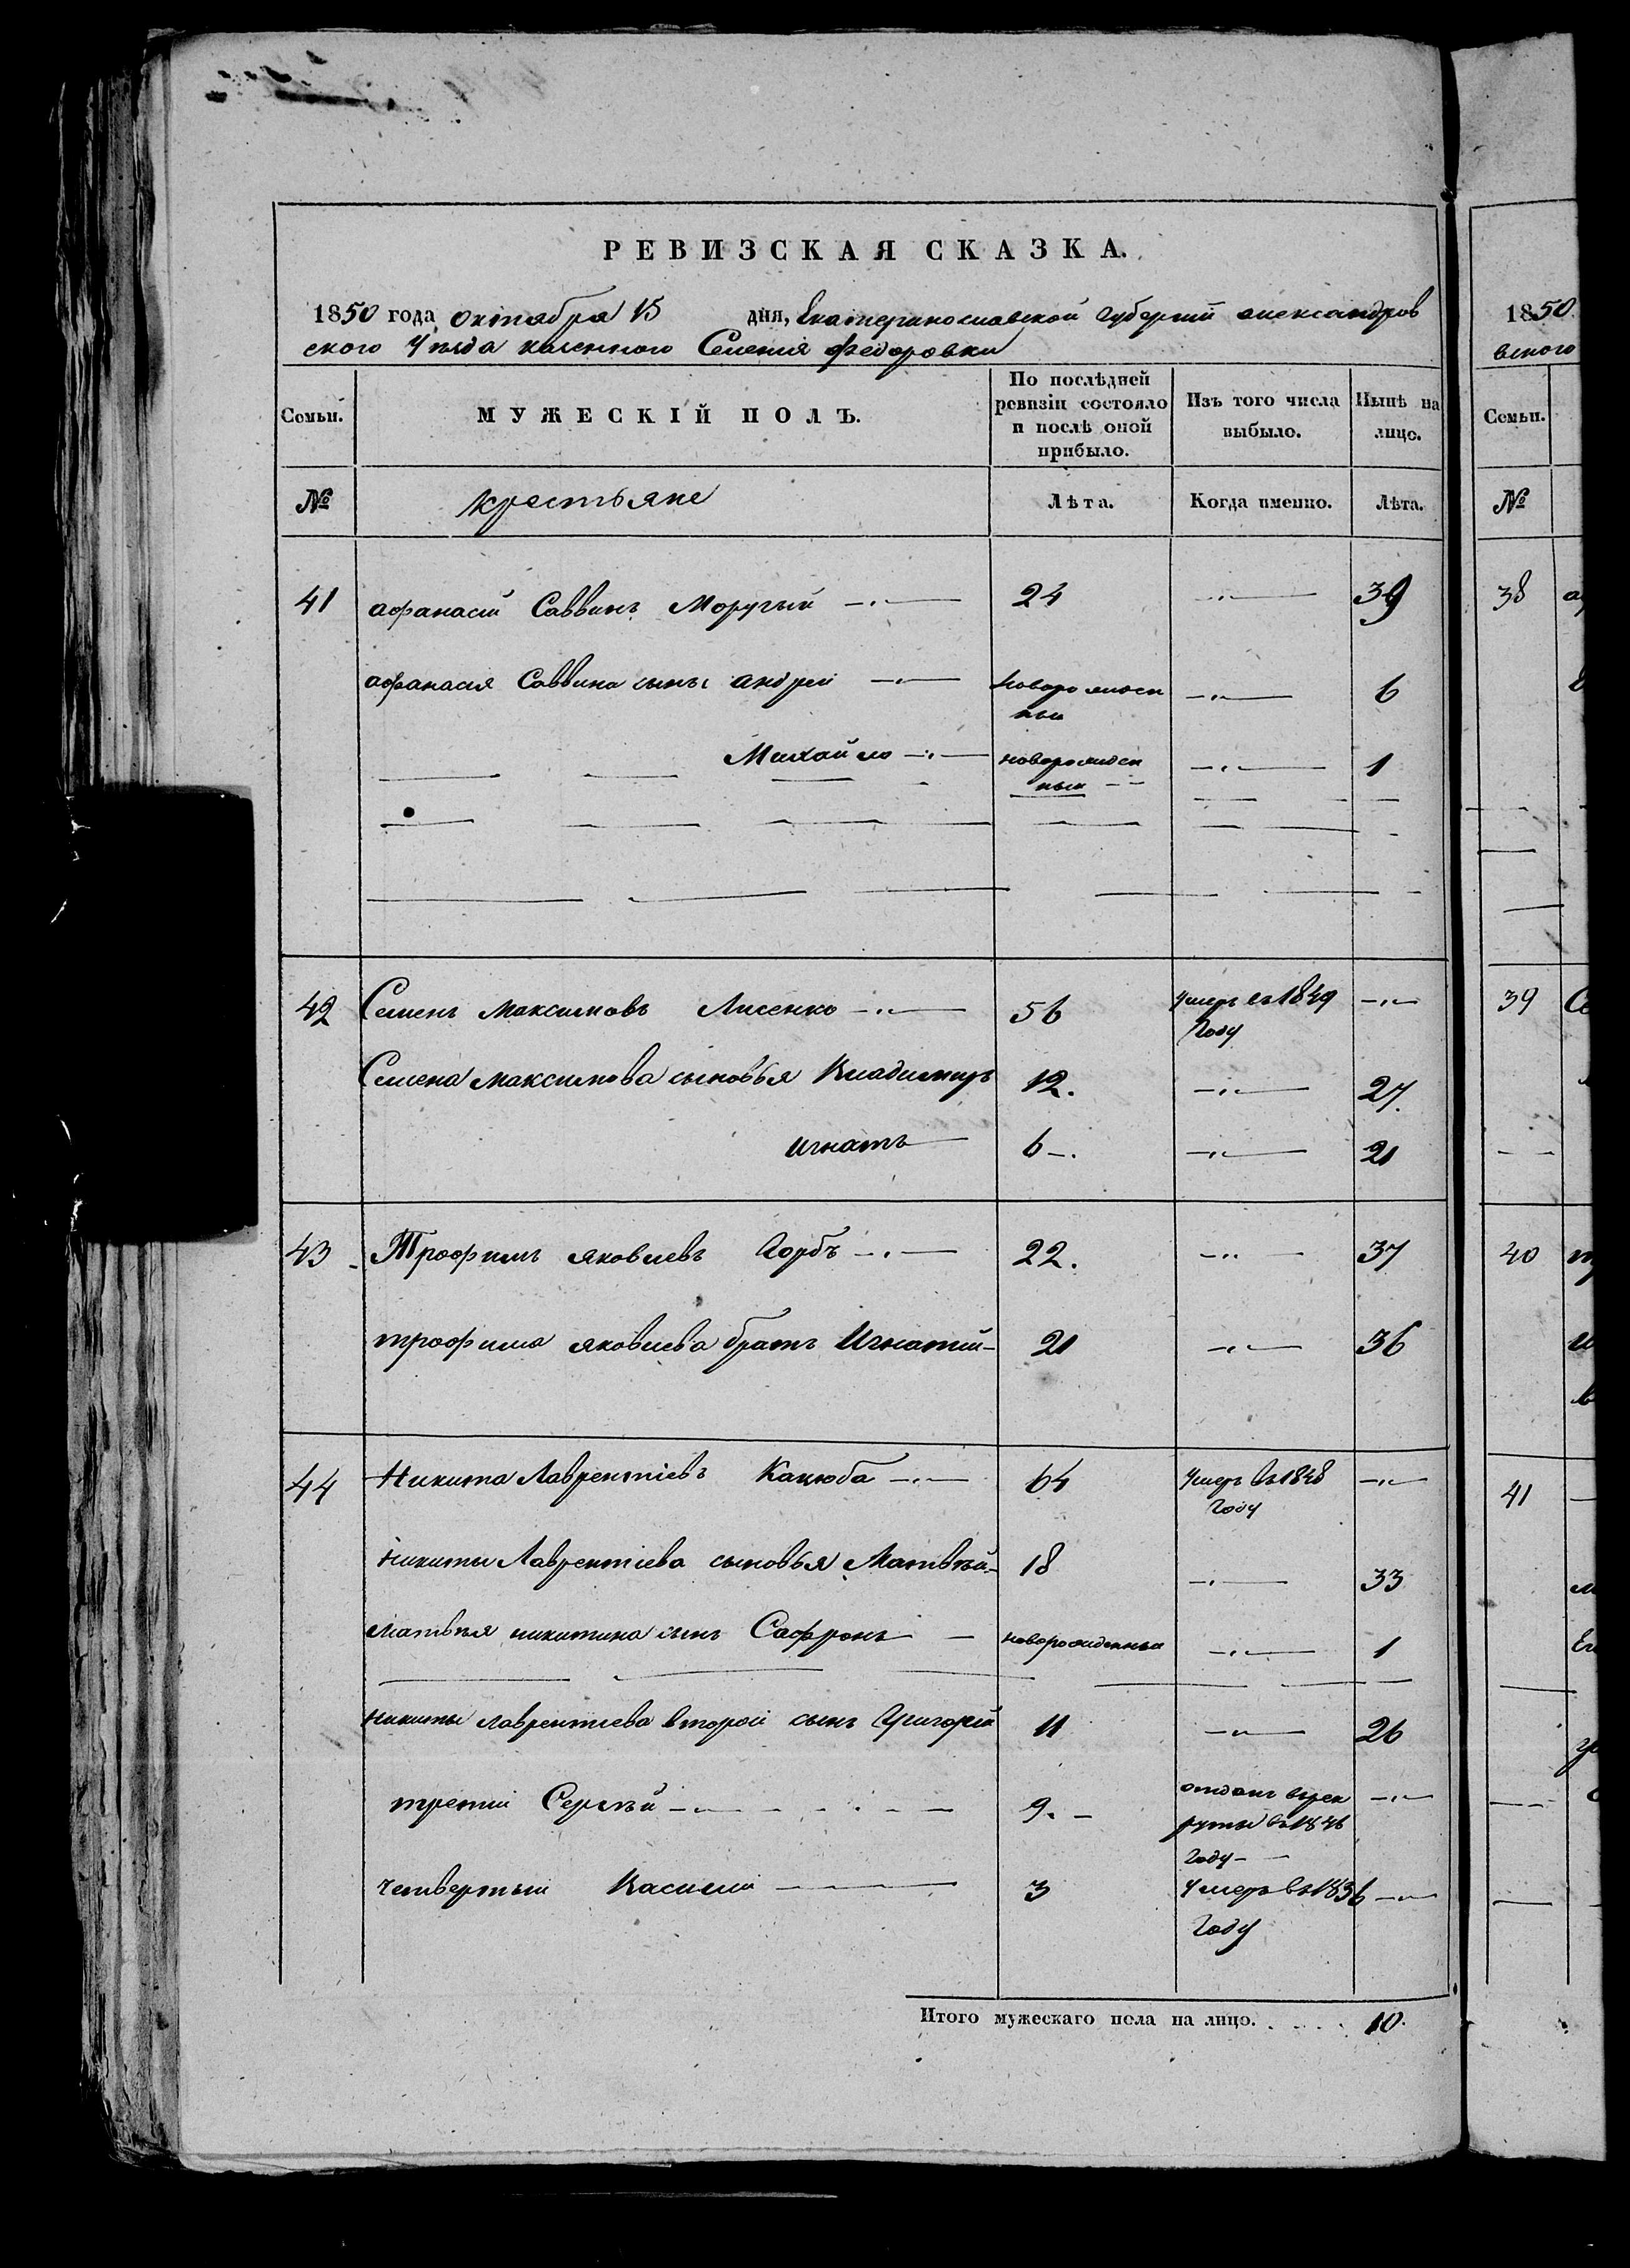 РЕВИЗСКАЯ СКАЗКА.
1850 года октября 15 дня, Екатеринославской губерний александров
ского Уезда казенного Селения Федоровки
Семьи.
МУЖЕСКІЙ ПОЛЪ.
По послѣдней ревизіи состояло и послѣ оной прибыло.
Изъ того числа выбыло.
Нынѣ на лицо.
№ крестьяне Лѣта. Когда именно. Лѣта.
41 афанасий Саввинъ 24 39
афанасия Саввина сынъ андрей новорожден 6
ный
Михайло новорожден 1
ный
42 Семенъ Максимовъ Лисенко 56 Умеръ въ 1849
году
Семена максимова сыновья Владимиръ 12. 27.
игнатъ 6 21
43 Трофимъ яковлевъ Горбъ 22. 37
трофима яковлева братъ Игнатий 21 36
44 Никита Лаврентіевъ Канюба 64 Умеръ въ 1848
году
Никиты Лаврентіева сыновья Матвѣй 18 33
Матвѣя никитина сынъ Сафронъ новорожденный 1
Никиты лаврентиева второй сынъ Григорий 11 26
третий Сергѣй 9. отданъ врек
руты въ 1846
году
четвертый Василий 3 Умеръ въ 1836
году
Итого мужескаго пола на лицо. 10.
1850
вского
Семьи.
№
38
39
40
41